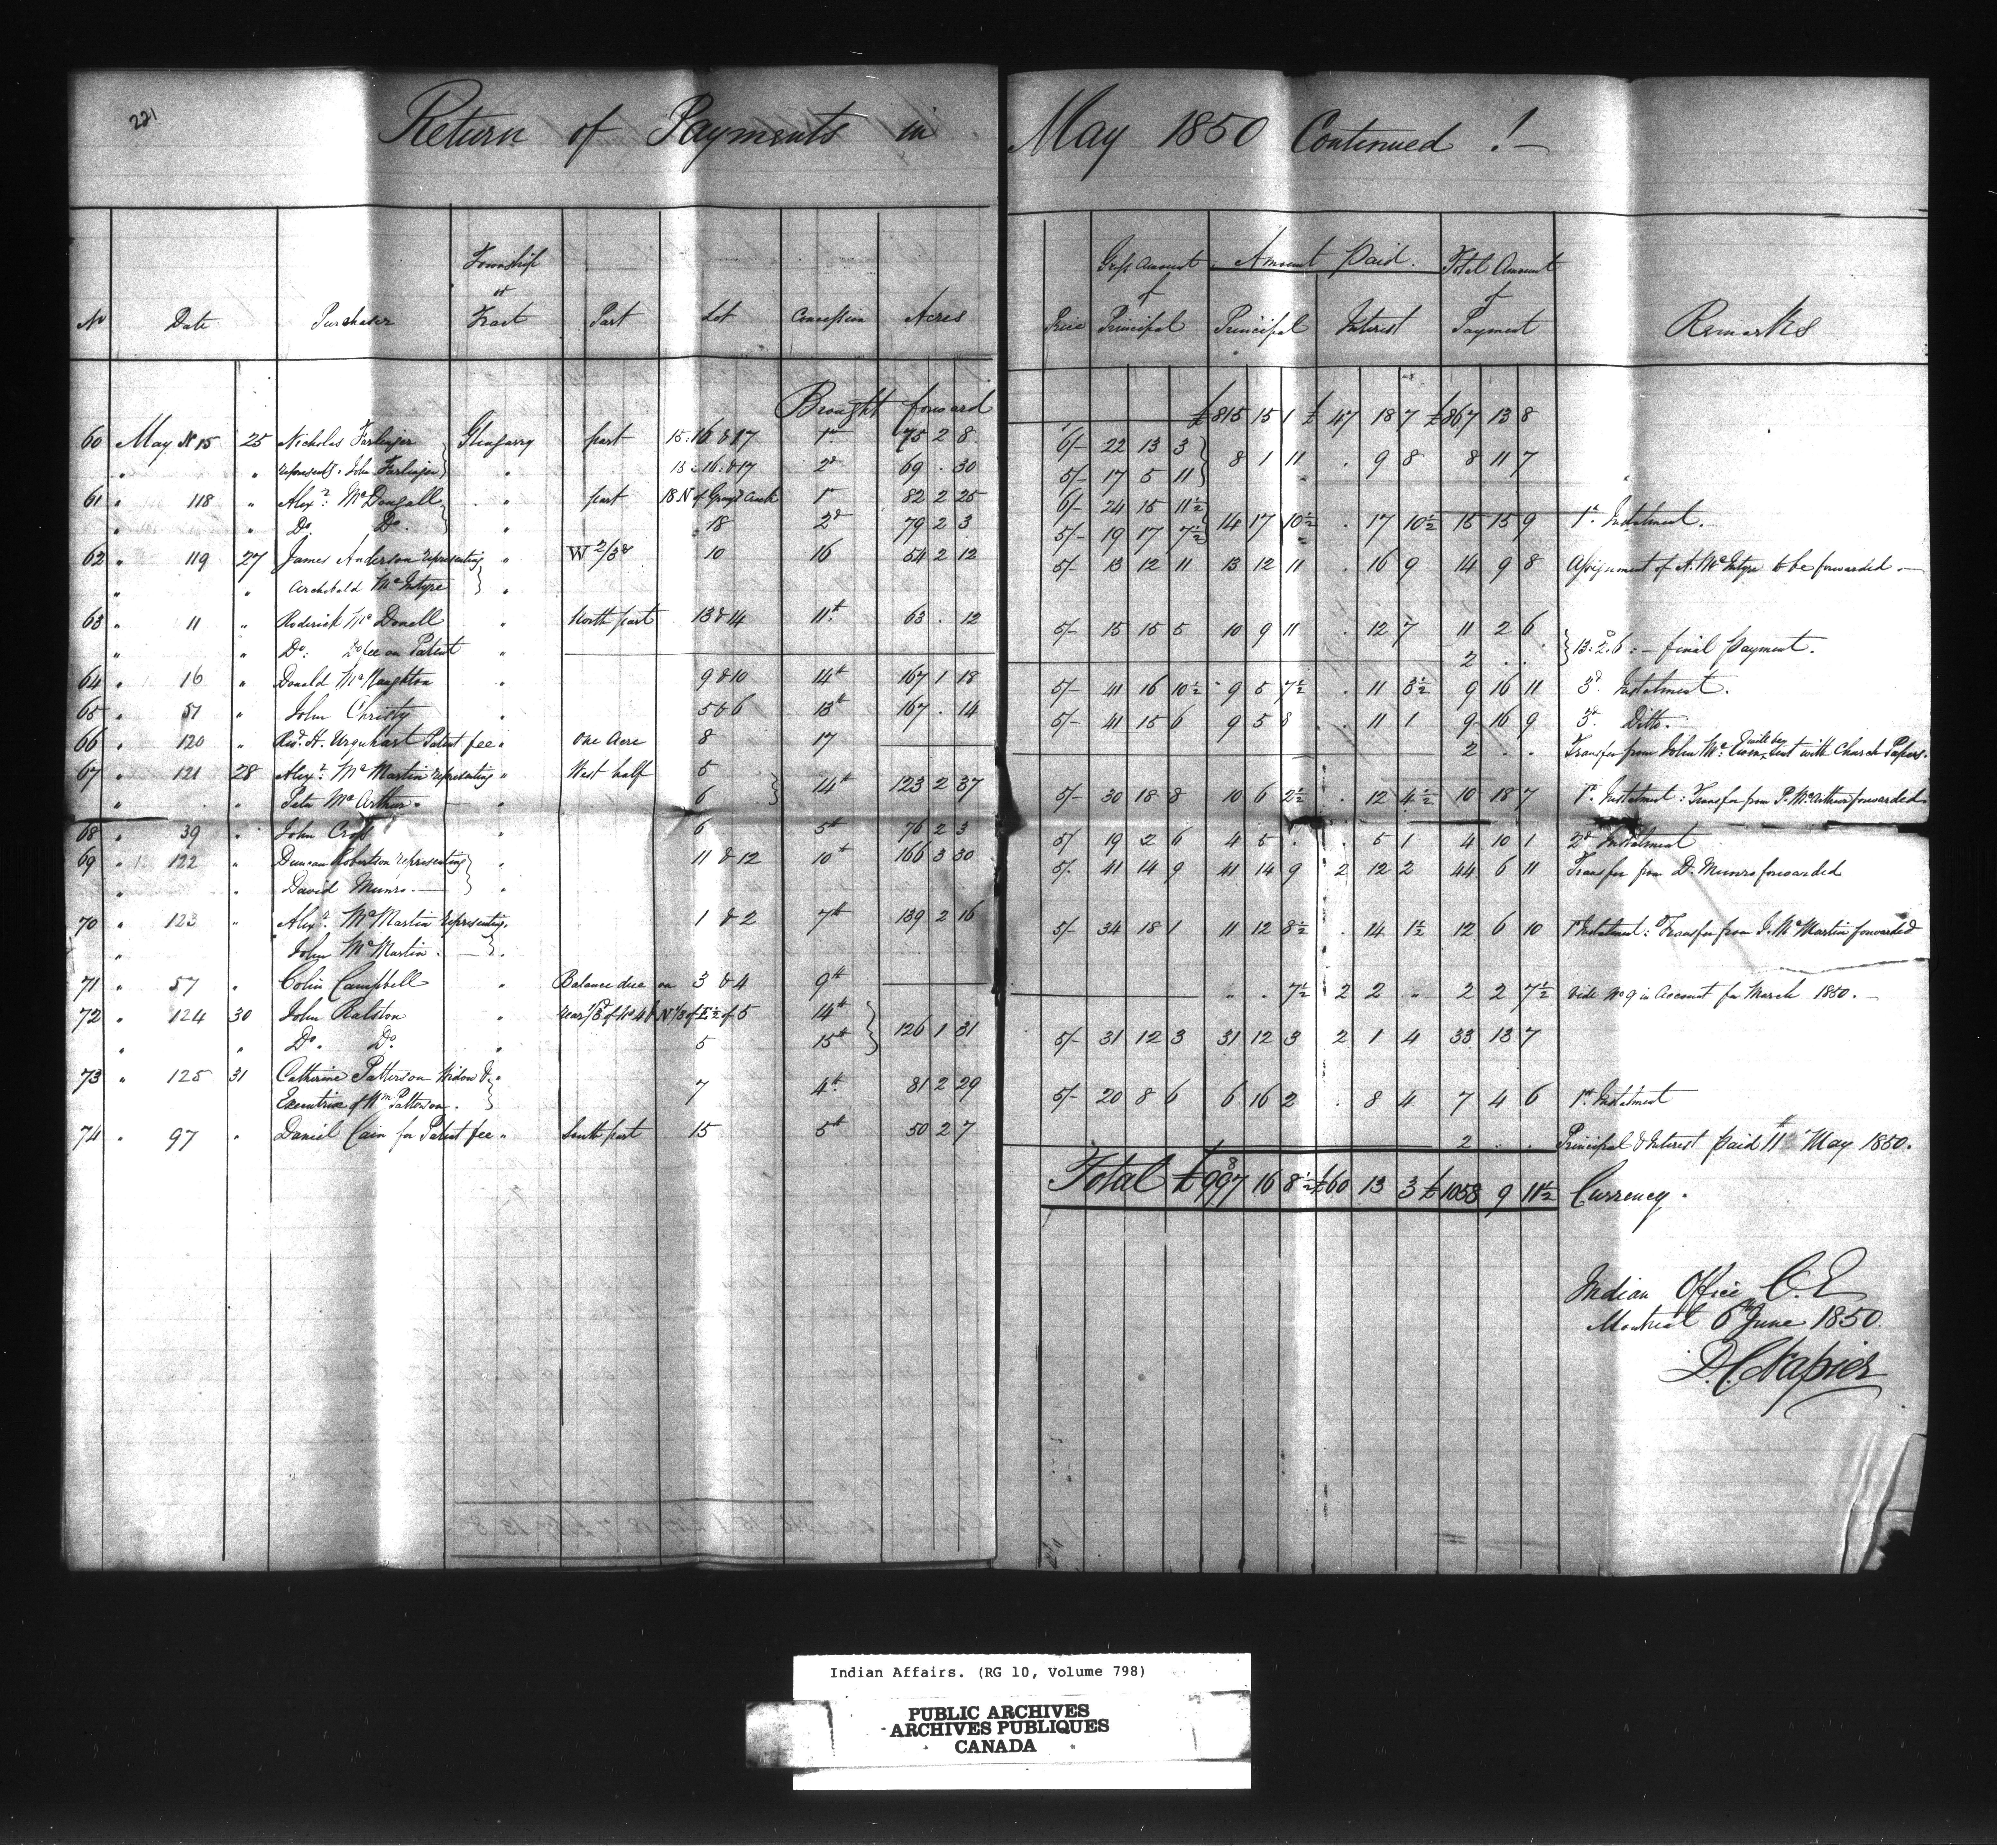 221
Return of Payments in May 1850 Continued !-
No Date Purchaser Township or Tract Part Lot Concession Acres Price Gross Amount of Principal Amount Paid. Principal Interest Total Amount of Payment Remarks
Brought forward £815 15 1 £47 18 7 £867 13 8
60 May No 15 25 Nicholas Farlinger Glengarry part 15.16 & 17 1st 75 2 8 6/- 22 13 3 8 1 11 . 9 8 8 11 7
" " represents. John Farlinger " 15.16.&17 2d 69 . 30 5/- 17 5 11
61 " 118 " Alexr. McDougall " part 18 N of Creek 1st 82 2 25 6/- 24 15 11½ 14 17 10½ . 17 10½ 15 15 9 1st. Instalment.
" " Do. Do. " 18 2d 79 2 3 5/- 19 17 7½
62 " 119 27 James Anderson representing " W 2/3ds 10 16 54 2 12 5/- 13 12 11 13 12 11 . 16 9 14 9 8 Assignment of A. McIntyre to be forwarded.-
" " Archibald McIntyre "
63 " 11 " Roderick McDonell " North part 13 & 14 11th. 63 . 12 5/- 15 15 5 10 9 11 . 12 7 11 2 6
" " Do: Do fee on Patent " 2 . . 13.2.6: - final Payment.
64 " 16 " Donald McNaughton " 9 & 10 14th 167 1 18 5/- 41 16 10½ 9 5 7½ . 11 3½ 9 16 11 3d. Instalment.
65 " 57 " John Christy " 5 & 6 13th 167 . 14 5/- 41 15 6 9 5 8 . 11 1 9 16 9 3d. Ditto.
66 " 120 " Revd. H. Urquhart Patent fee " One Acre 8 17 2 . . Transfer from John Mc will be sent with Church Papers.
67 " 121 28 Alexr. McMartin representing " West half 5
" . " Peter McArthur. " 6 14th 123 2 37 5/- 30 18 8 10 6 2½ . 12 4½ 10 18 7 1st. Instalment: Transfer from P. McArthur forwarded
68 " 39 " John Crost " 6 5th 76 2 3 5/ 19 2 6 4 5 . . 5 1 4 10 1 2d Instalment
69 " 122 " Duncan Robertson representing " 11 & 12 10th 166 3 30 5/. 41 14 9 41 14 9 2 12 2 44 6 11 Transfer from D. Munro forwarded
" " David Munro. "
70 " 123 " Alexr. McMartin representing " 1 & 2 7th 139 2 16 5/- 34 18 1 11 12 8½ . 14 1½ 12 6 10 1st Instalment: Transfer from J. McMartin forwarded
" John McMartin. "
71 " 57 " Colin Campbell " Balance due on 3 & 4 9th " . 7½ 2 2 " 2 2 7½ Vide No 9 in Account for March 1850.-
72 " 124 30 John Ralston " rear 1/3d of No 4 & N 1/3 of E½ of 5 14th
" " Do. Do. " 5 15th 126 1 31 5/- 31 12 3 31 12 3 2 1 4 33 13 7
73 " 125 31 Catherine Patterson Widow & " 7 4th. 81 2 29 5/- 20 8 6 6 16 2 . 8 4 7 4 6 1st. Instalment
Executrix of Wm Patterson.
74 " 97 " Daniel Cain for Patent fee " South part 15 5th 50 2 7 2 . . Principal & Interest paid 11th May 1850.
Total £997 16 8½ £60 13 3 £1058 9 11½ Currency.
Indian Office C.E
Montreal 6th June 1850.
D.C. Napier
Indian Affairs. (RG 10, Volume 798)
PUBLIC ARCHIVES
ARCHIVES PUBLIQUES
CANADA